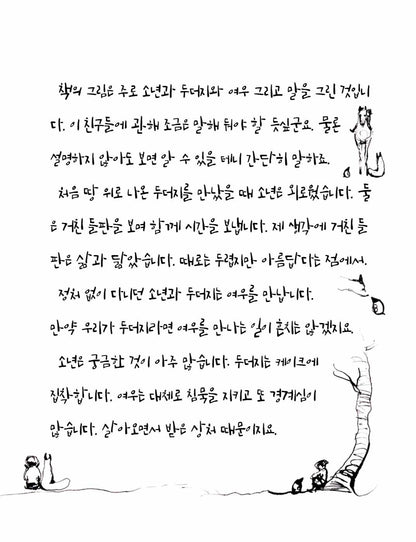 책의 그림은 주로 소년과 두더지와 여우 그리고 말을 그린 것입니
다. 이 친구들에 관해 조금은 말해 둬야 할 듯싶군요. 물론
설명하지 않아도 보면 알 수 있을 테니 간단히 말하죠.
처음 땅 위로 나온 두더지를 만났을 때 소년은 외로웠습니다. 둘
은 거친 들판을 보며 함께 시간을 보냅니다. 제 생각에 거친 들
판은 삶과 닮았습니다. 때로는 두렵지만 아름답다는 점에서.
정처 없이 다니던 소년과 두더지는 여우를 만납니다.
만약 우리가 두더지라면 여우를 만나는 일이 흔치는 않겠지요.
소년은 궁금한 것이 아주 많습니다. 두더지는 케이크에
집착합니다. 여우는 대체로 침묵을 지키고 또 경계심이
많습니다. 살아오면서 받은 상처 때문이지요.